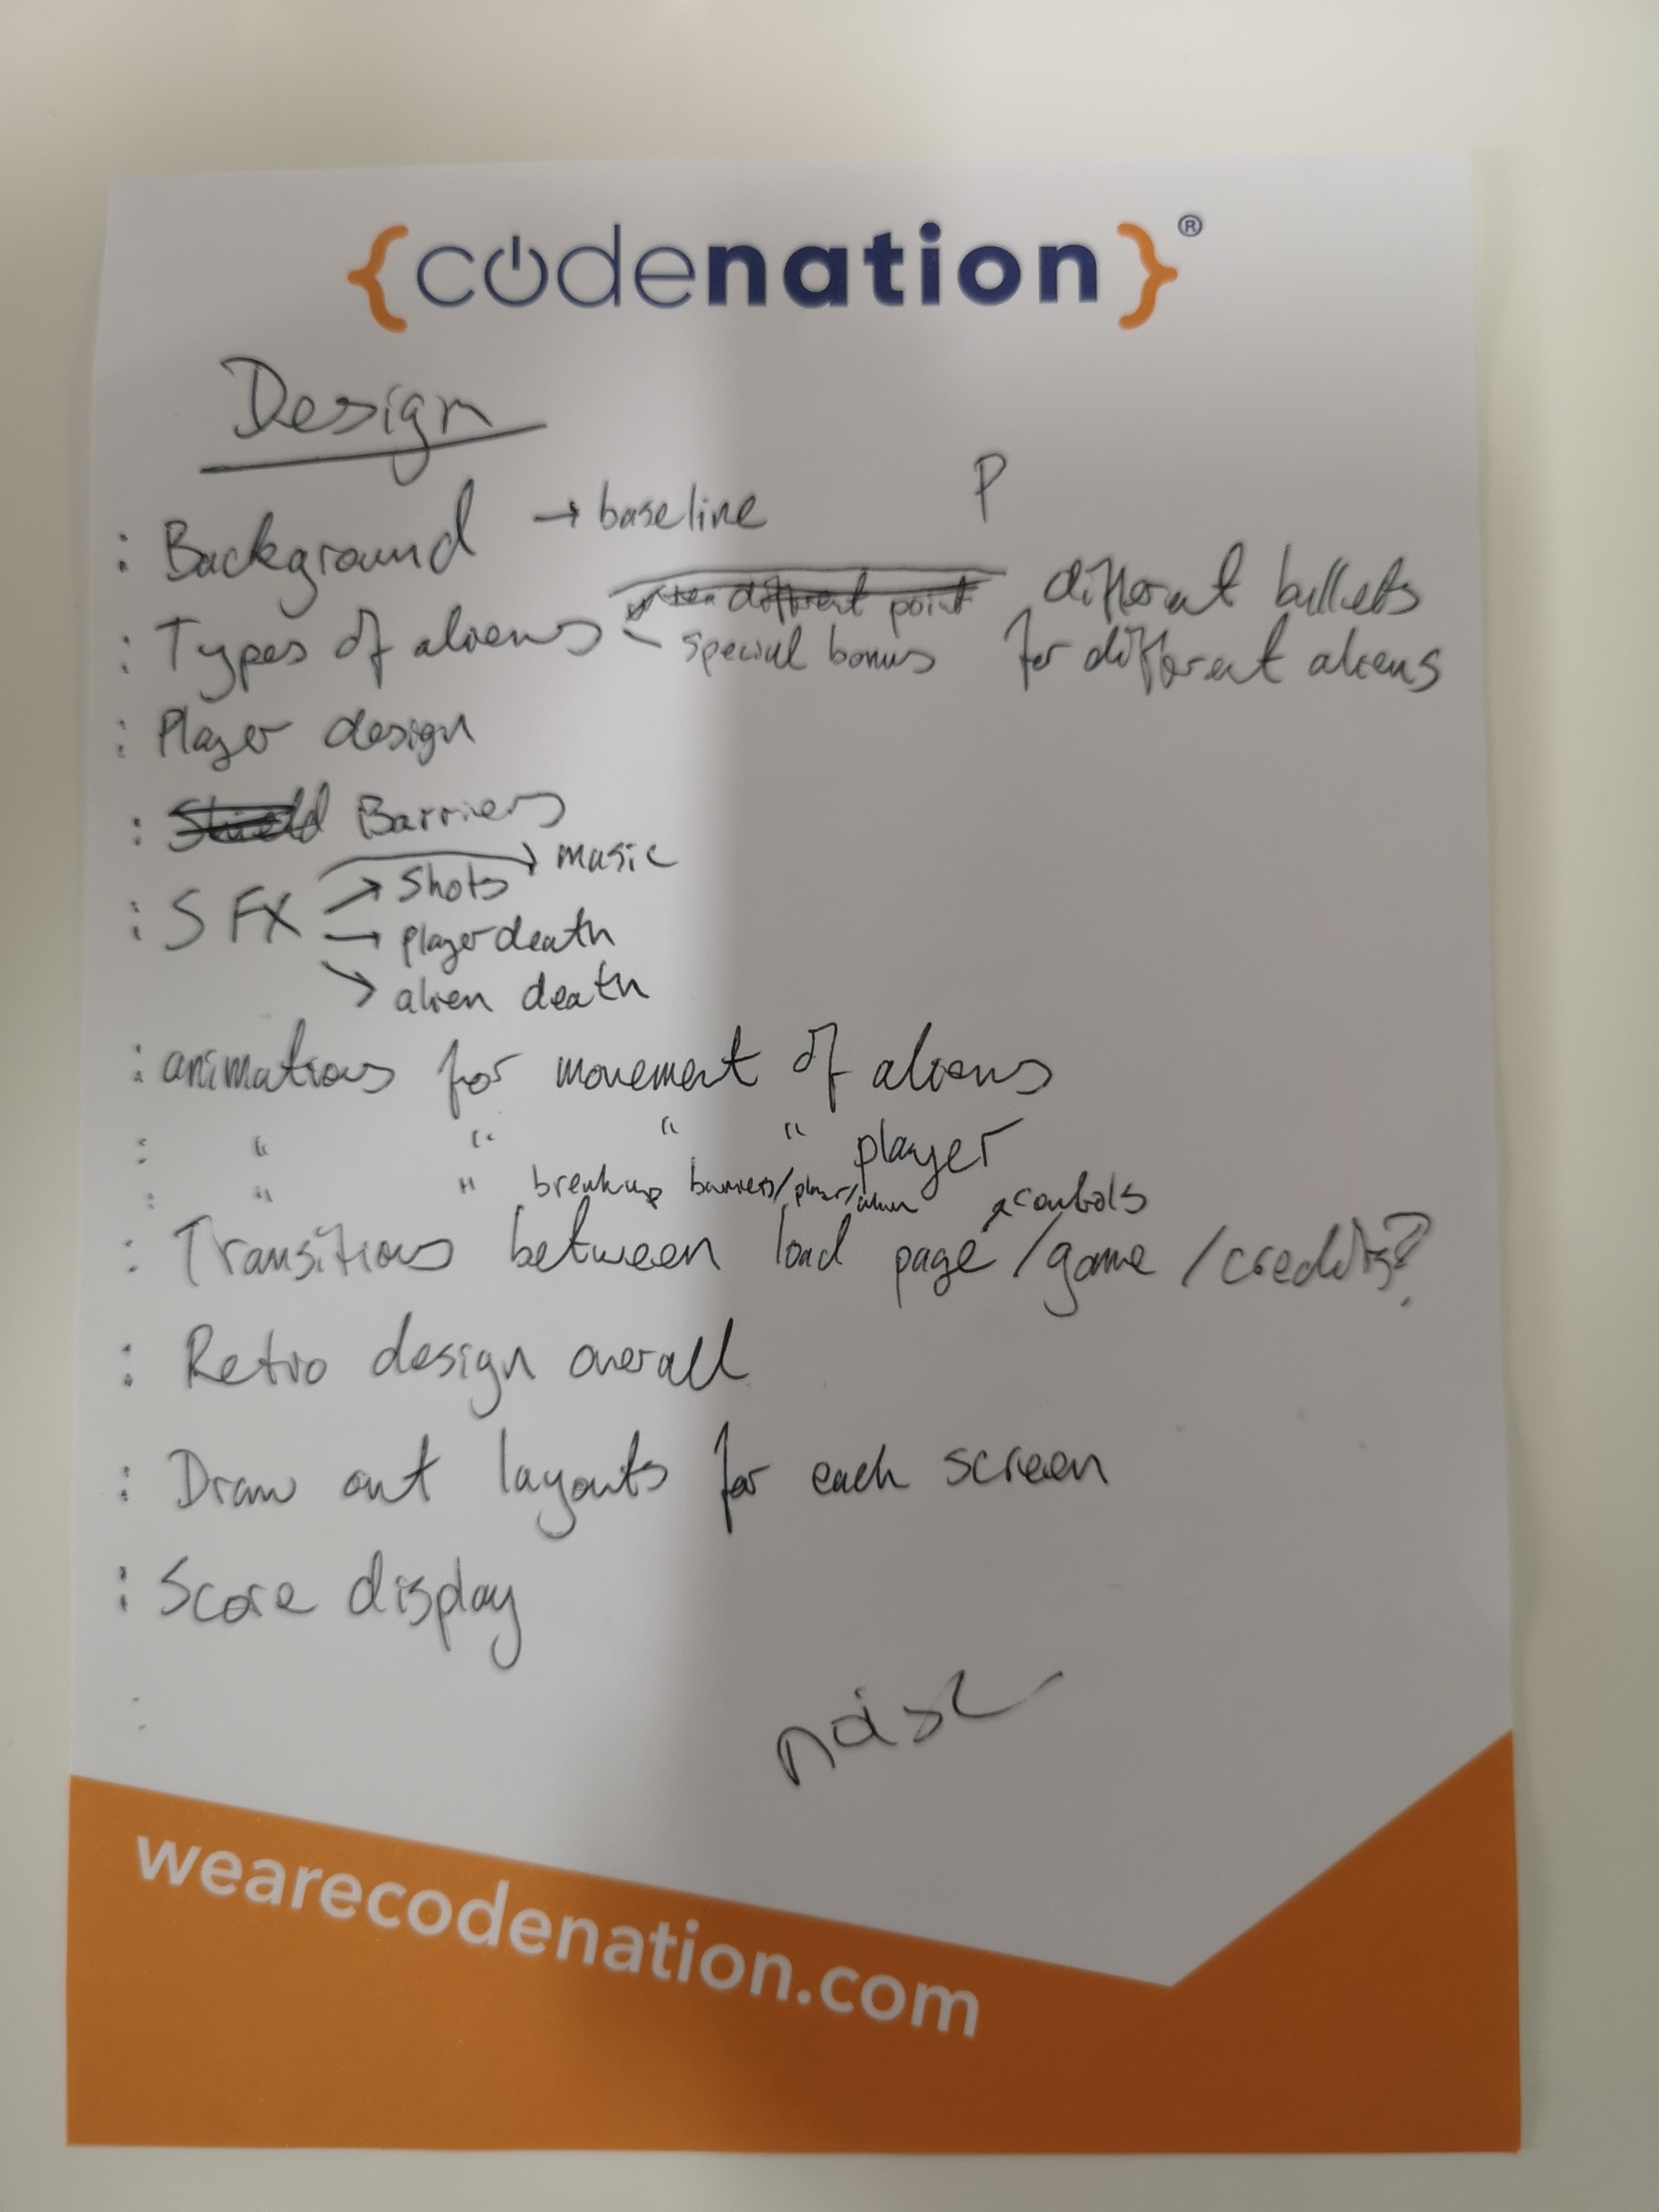 {codenation}®
Design
P
: Background → baseline
different point
different bullets
: Types of aliens - special bonus for different aliens
: Player design
: Shield Barriers
→ music
: SFX → shots
→ player death
→ alien death
: animations for movement of aliens
: " " " " player
: " " breakup barriers/player/alien
controls
: Transitions between load page/game/credits?
: Retro design overall
: Draw out layouts for each screen
: Score display
:
noise
wearecodenation.com